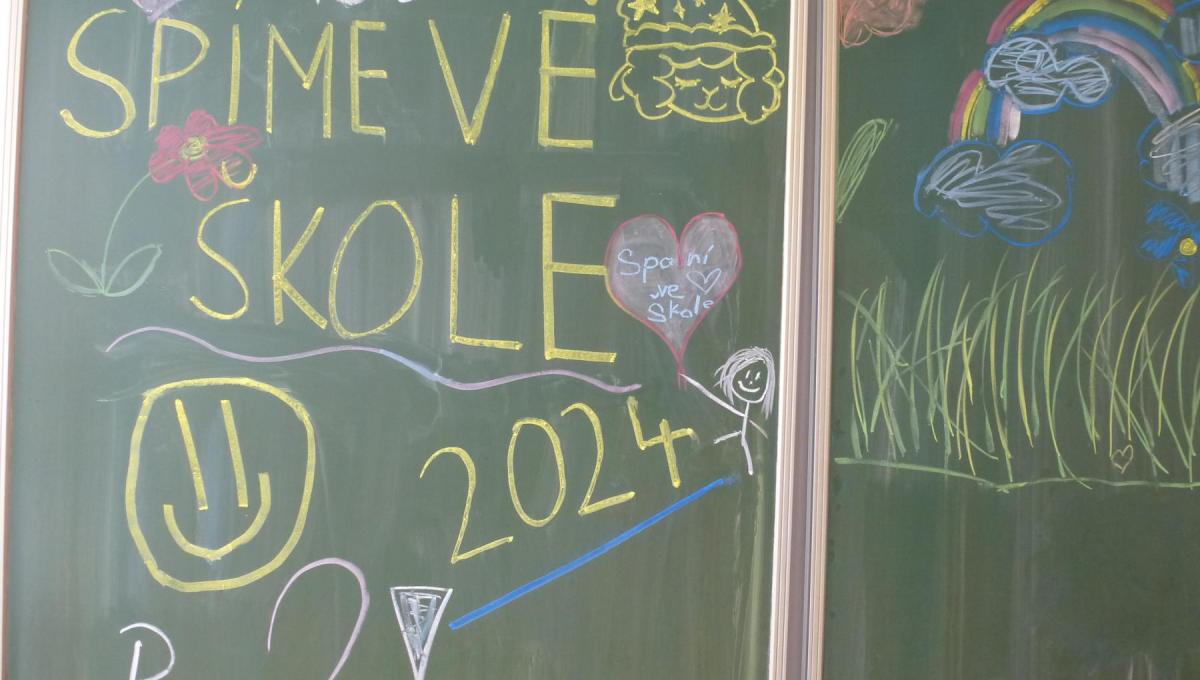 SPÍME VE
ŠKOLE
Spaní
ve
škole
2024